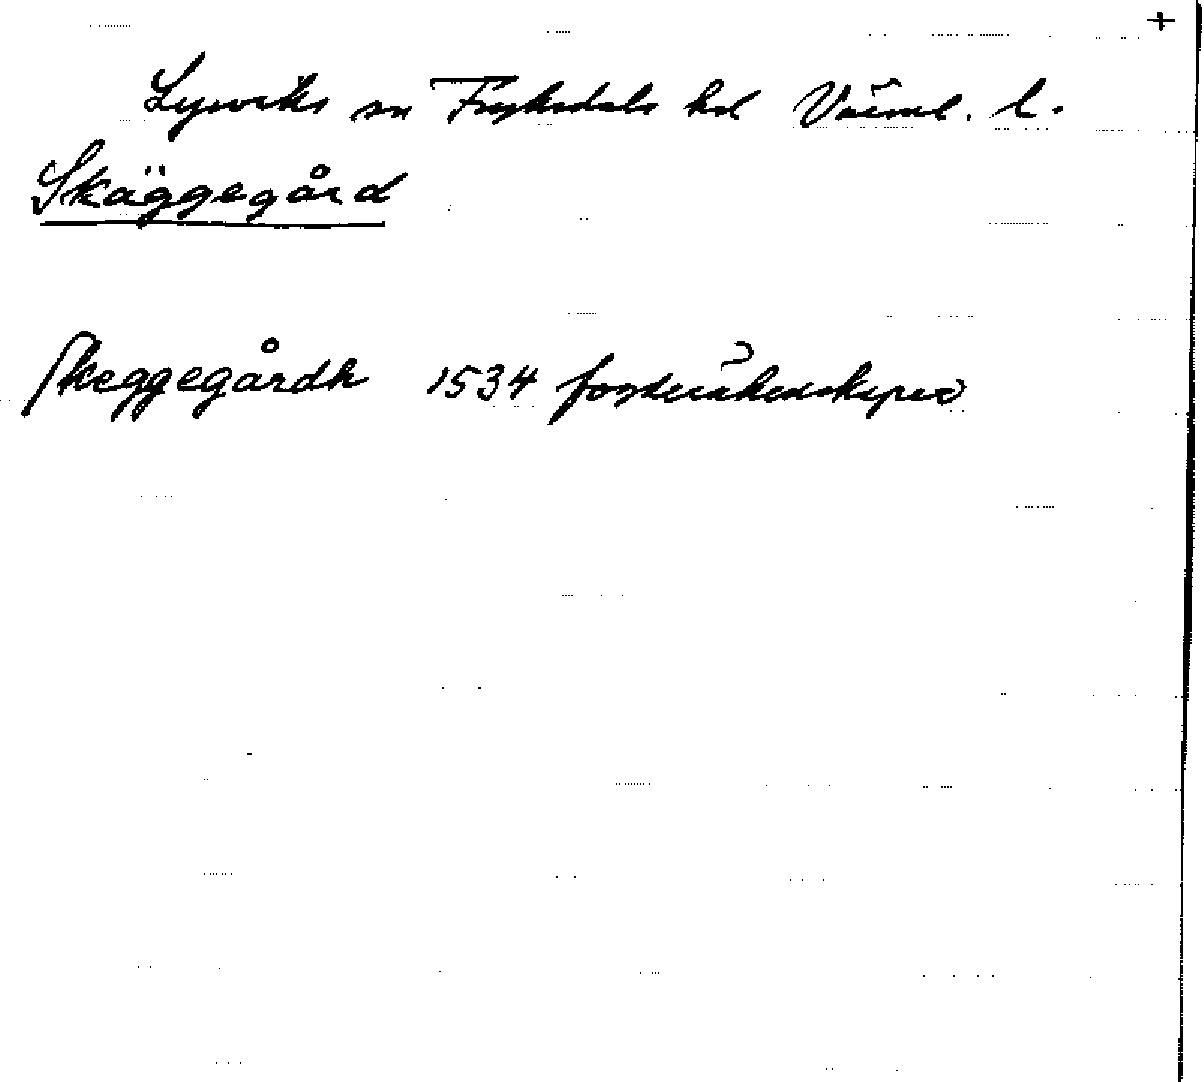 +
Lysviks sn Fryksdals hd Värml. l.
Skäggegård
Skeggegårdh 1534 fogderäkenskaper